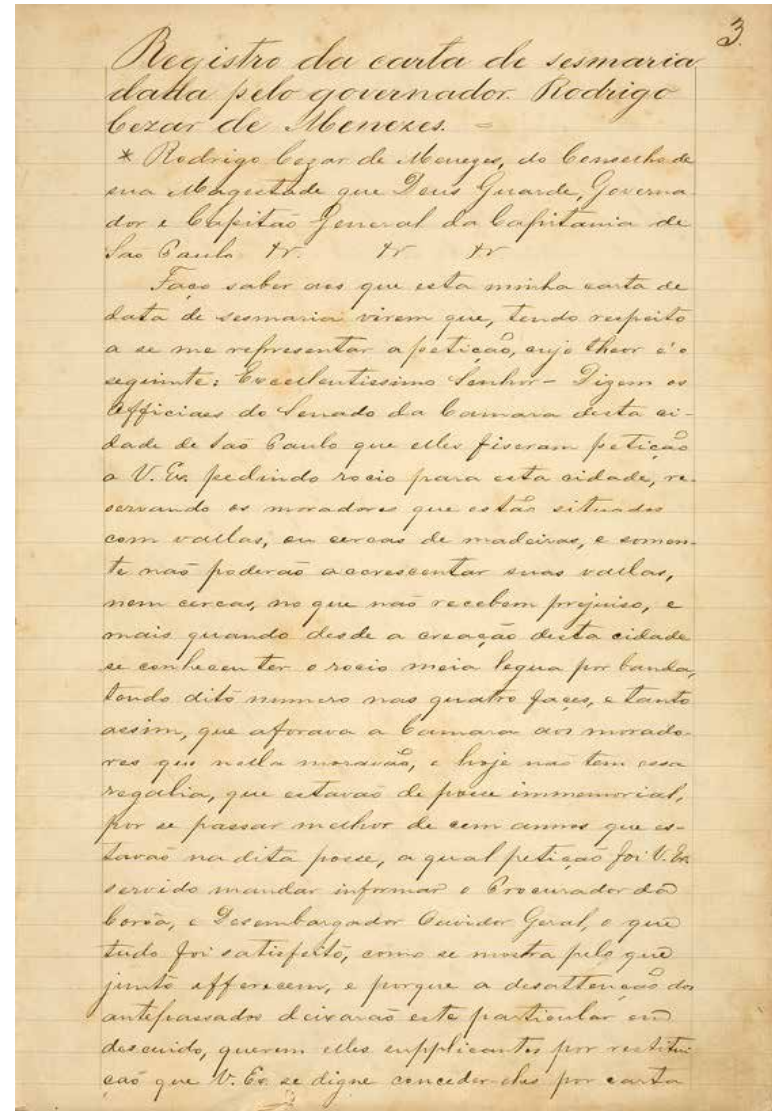 3.
Registro da carta de sesmaria
datta pelo governador Rodrigo
Cezar de Menezes. =
* Rodrigo Cezar de Menezes, do Conselho de
sua Magestade que Deus Guarde, Governa-
dor e Capitão General da Capitania de
São Paulo &r. &r &r
Faço saber aos que esta minha carta de
data de sesmaria virem que, tendo respeito
a se me representar a petição, cujo theor é o
seguinte: Excellentissimo Senhor - Dizem os
Officiaes do Senado da Camara desta ci-
dade de São Paulo que elles fiseram petição
a V. Ex. pedindo rocio para esta cidade, re-
servando os moradores que estão situados
com vallas, ou cercas de madeiras, e somen-
te não poderão accrescentar suas vallas,
nem cercas, no que não recebem prejuiso, e
mais quando desde a creação desta cidade
se conheceu ter o rocio meia legua por banda,
tendo dito numero nas quatro faces, e tanto
assim, que aforava a Camara aos morado-
res que nella moravão, e hoje não tem essa
regalia, que estavão de posse immemorial,
por se passar melhor de cem annos que es-
tavão na dita posse, a qual petição foi V. Ex.
servido mandar informar o Procurador da
Corôa, e Desembargador Ouvidor Geral, o que
tudo foi satisfeito, como se mostra pelo que
junto offerecem, e porque a desattenção dos
antepassados deixarão este particular em
descuido, querem elles supplicantes por restitui
ção que V. Ex. se digne conceder-lhes por carta